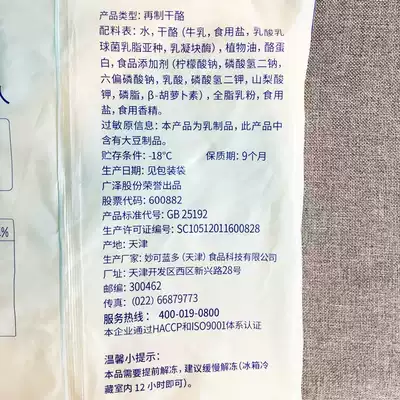 产品类型：再制干酪
配料表：水，干酪（牛乳，食用盐，乳酸乳
球菌乳脂亚种，乳凝块酶），植物油，酪蛋
白，食品添加剂（柠檬酸钠，磷酸氢二钠，
六偏磷酸钠，乳酸，磷酸氢二钾，山梨酸
钾，磷脂，β-胡萝卜素），全脂乳粉，食用
盐，食用香精。
过敏原信息：本产品为乳制品，此产品中
含有大豆制品。
贮存条件：-18℃ 保质期：9个月
生产日期：见包装袋
广泽股份荣誉出品
股票代码：600882
产品标准代号：GB 25192
生产许可证编号：SC10512011600828
产地：天津
生产厂家：妙可蓝多（天津）食品科技有限公司
厂址：天津开发区西区新兴路28号
邮编：300462
传真：(022) 66879773
服务热线： 400-019-0800
本企业通过HACCP和ISO9001体系认证
温馨小提示：
本品需要提前解冻，建议缓慢解冻（冰箱冷
藏室内 12 小时即可）。